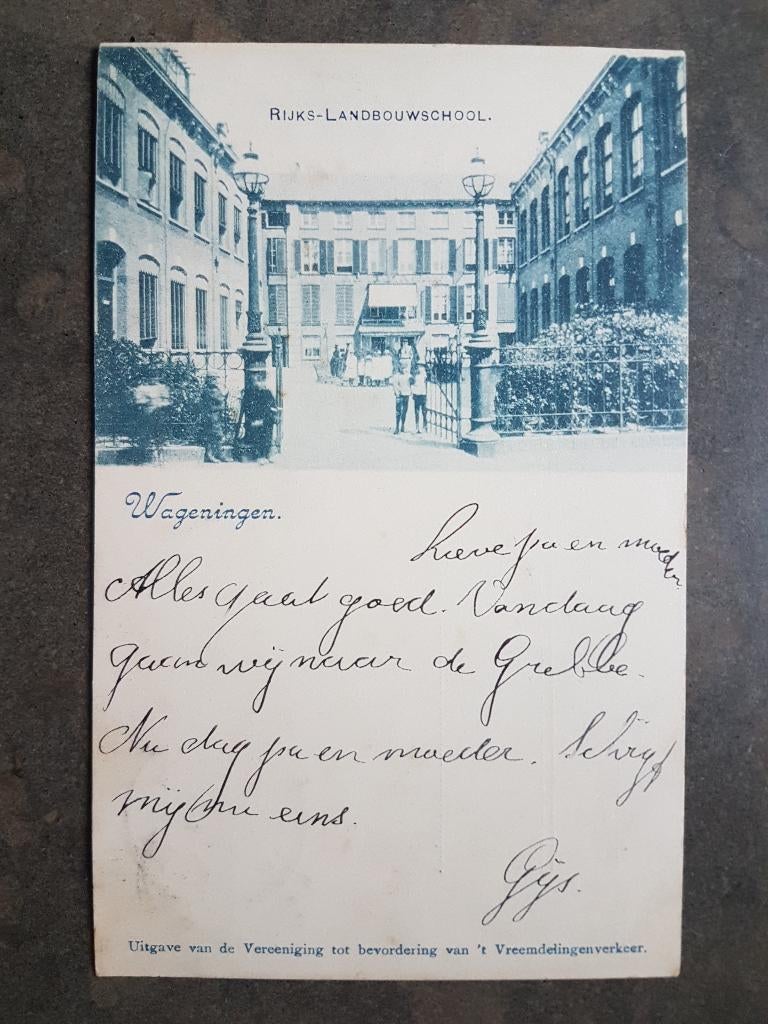 RIJKS-LANDBOUWSCHOOL.
Wageningen.
Lieve pa en moeder
Alles gaat goed. Vandaag
gaan wij naar de Grebbe.
Nu dag pa en moeder. Schrijf
mij nu eens.
Gijs.
Uitgave van de Vereeniging tot bevordering van 't Vreemdelingenverkeer.